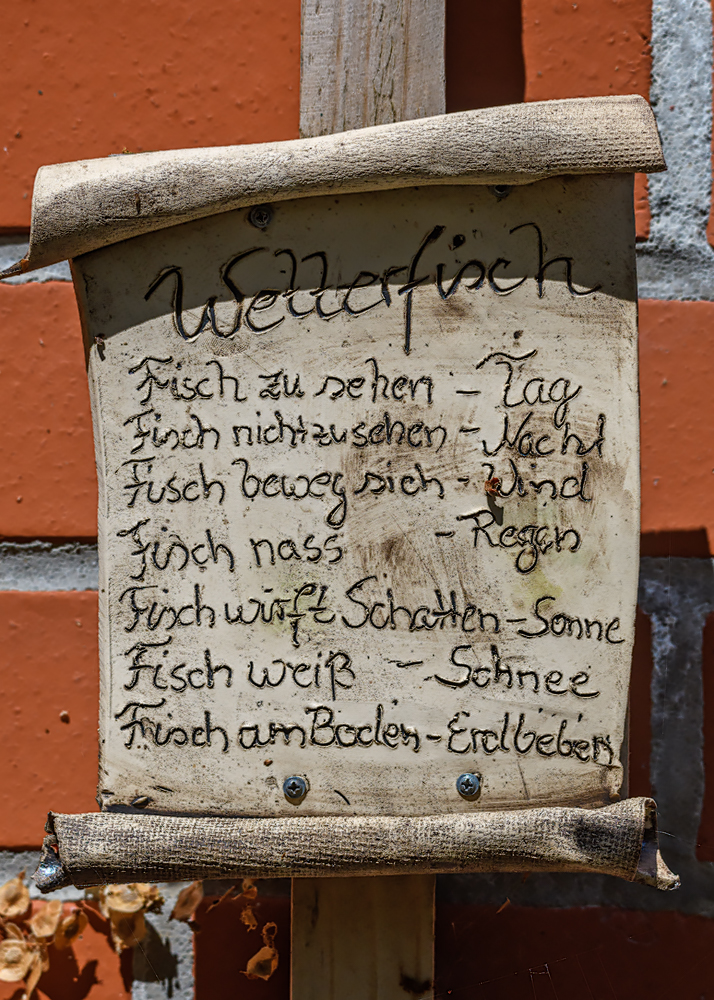 Wetterfisch
Fisch zu sehen - Tag
Fisch nicht zu sehen - Nacht
Fisch beweg sich - Wind
Fisch nass - Regen
Fisch wirft Schatten - Sonne
Fisch weiß - Schnee
Fisch am Boden - Erdbeben